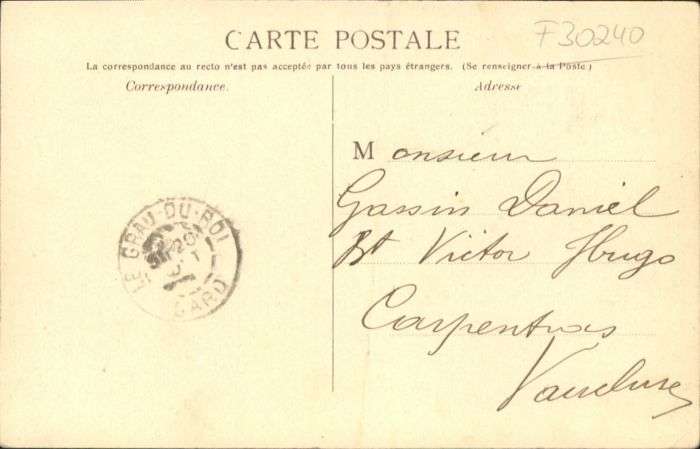 F30240
CARTE POSTALE
La correspondance au recto n'est pas acceptée par tous les pays étrangers. (Se renseigner à la Poste)
Correspondance.
Adresse
Monsieur
Gassin Daniel
Bt Victor Hugo
Carpentras
Vaucluse
LE GRAU-DU-ROI
GARD